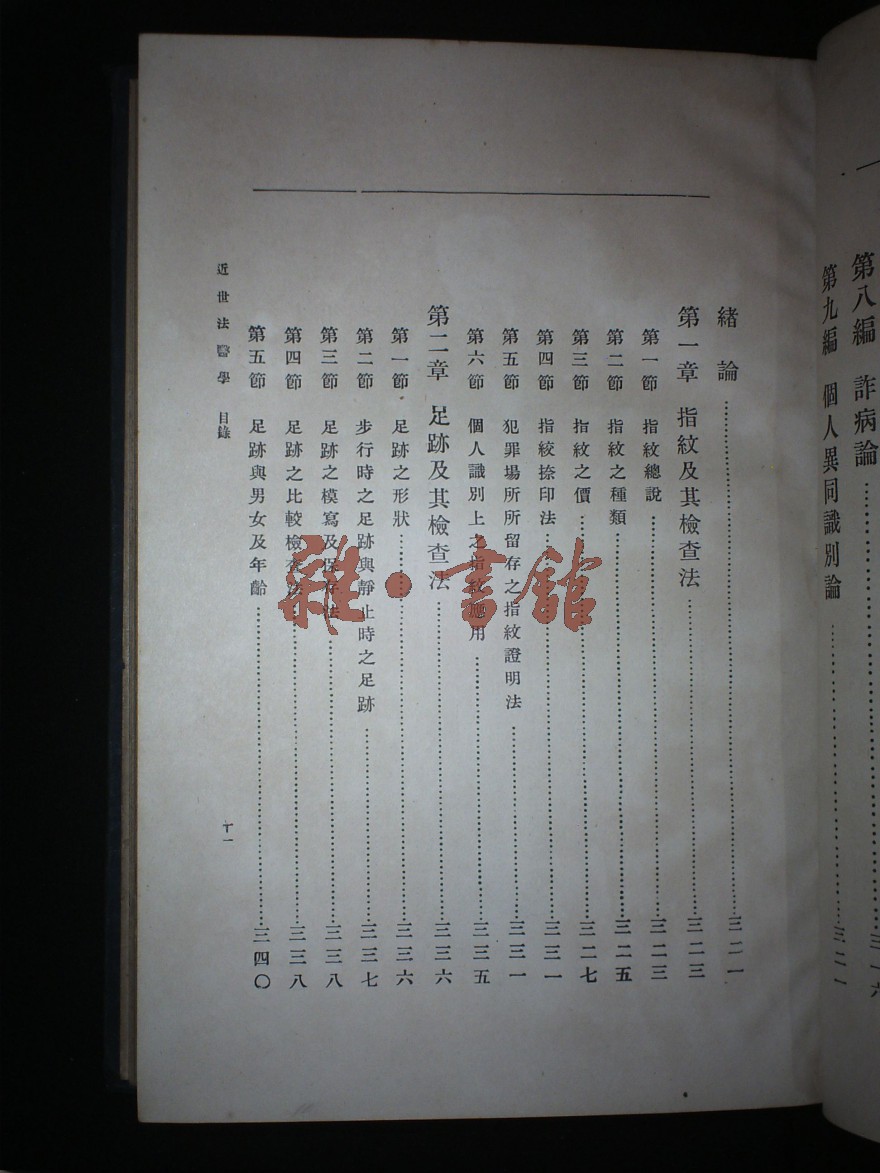 第八編 詐病論 三一六
第九編 個人異同識別論 三二一
緒論 三二一
第一章 指紋及其檢查法 三二三
第一節 指紋總說 三二三
第二節 指紋之種類 三二五
第三節 指紋之價 三二七
第四節 指絞捺印法 三三一
第五節 犯罪場所所留存之指紋證明法 三三一
第六節 個人識別上之指紋應用 三三五
第二章 足跡及其檢查法 三三六
第一節 足跡之形狀 三三六
第二節 步行時之足跡與靜止時之足跡 三三七
第三節 足跡之模寫及保存法 三三八
第四節 足跡之比較檢查法 三三八
第五節 足跡與男女及年齡 三四〇
近世法醫學 目錄
十一
雜·書館